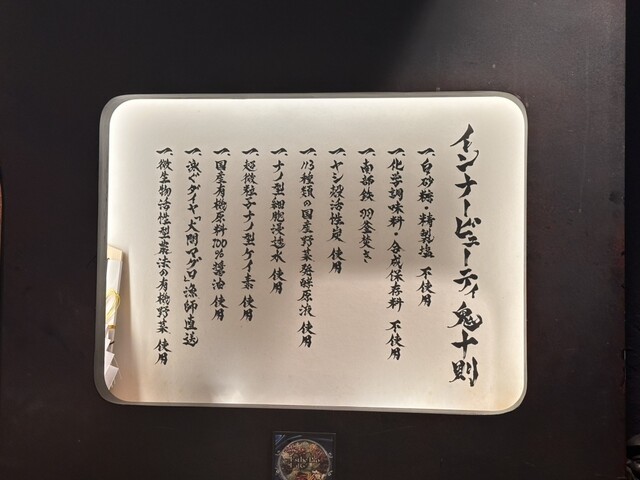 インナービューティ鬼十則
一、白砂糖・精製塩 不使用
一、化学調味料・合成保存料 不使用
一、南部鉄 羽釜焚き
一、ヤシ殻活性炭 使用
一、113種類の国産野菜発酵原液 使用
一、ナノ型細胞浸透水 使用
一、超微粒子ナノ型ケイ素 使用
一、国産有機原料100%醤油 使用
一、泳ぐダイヤ「大間マグロ」漁師直送
一、微生物活性型農法の有機野菜 使用